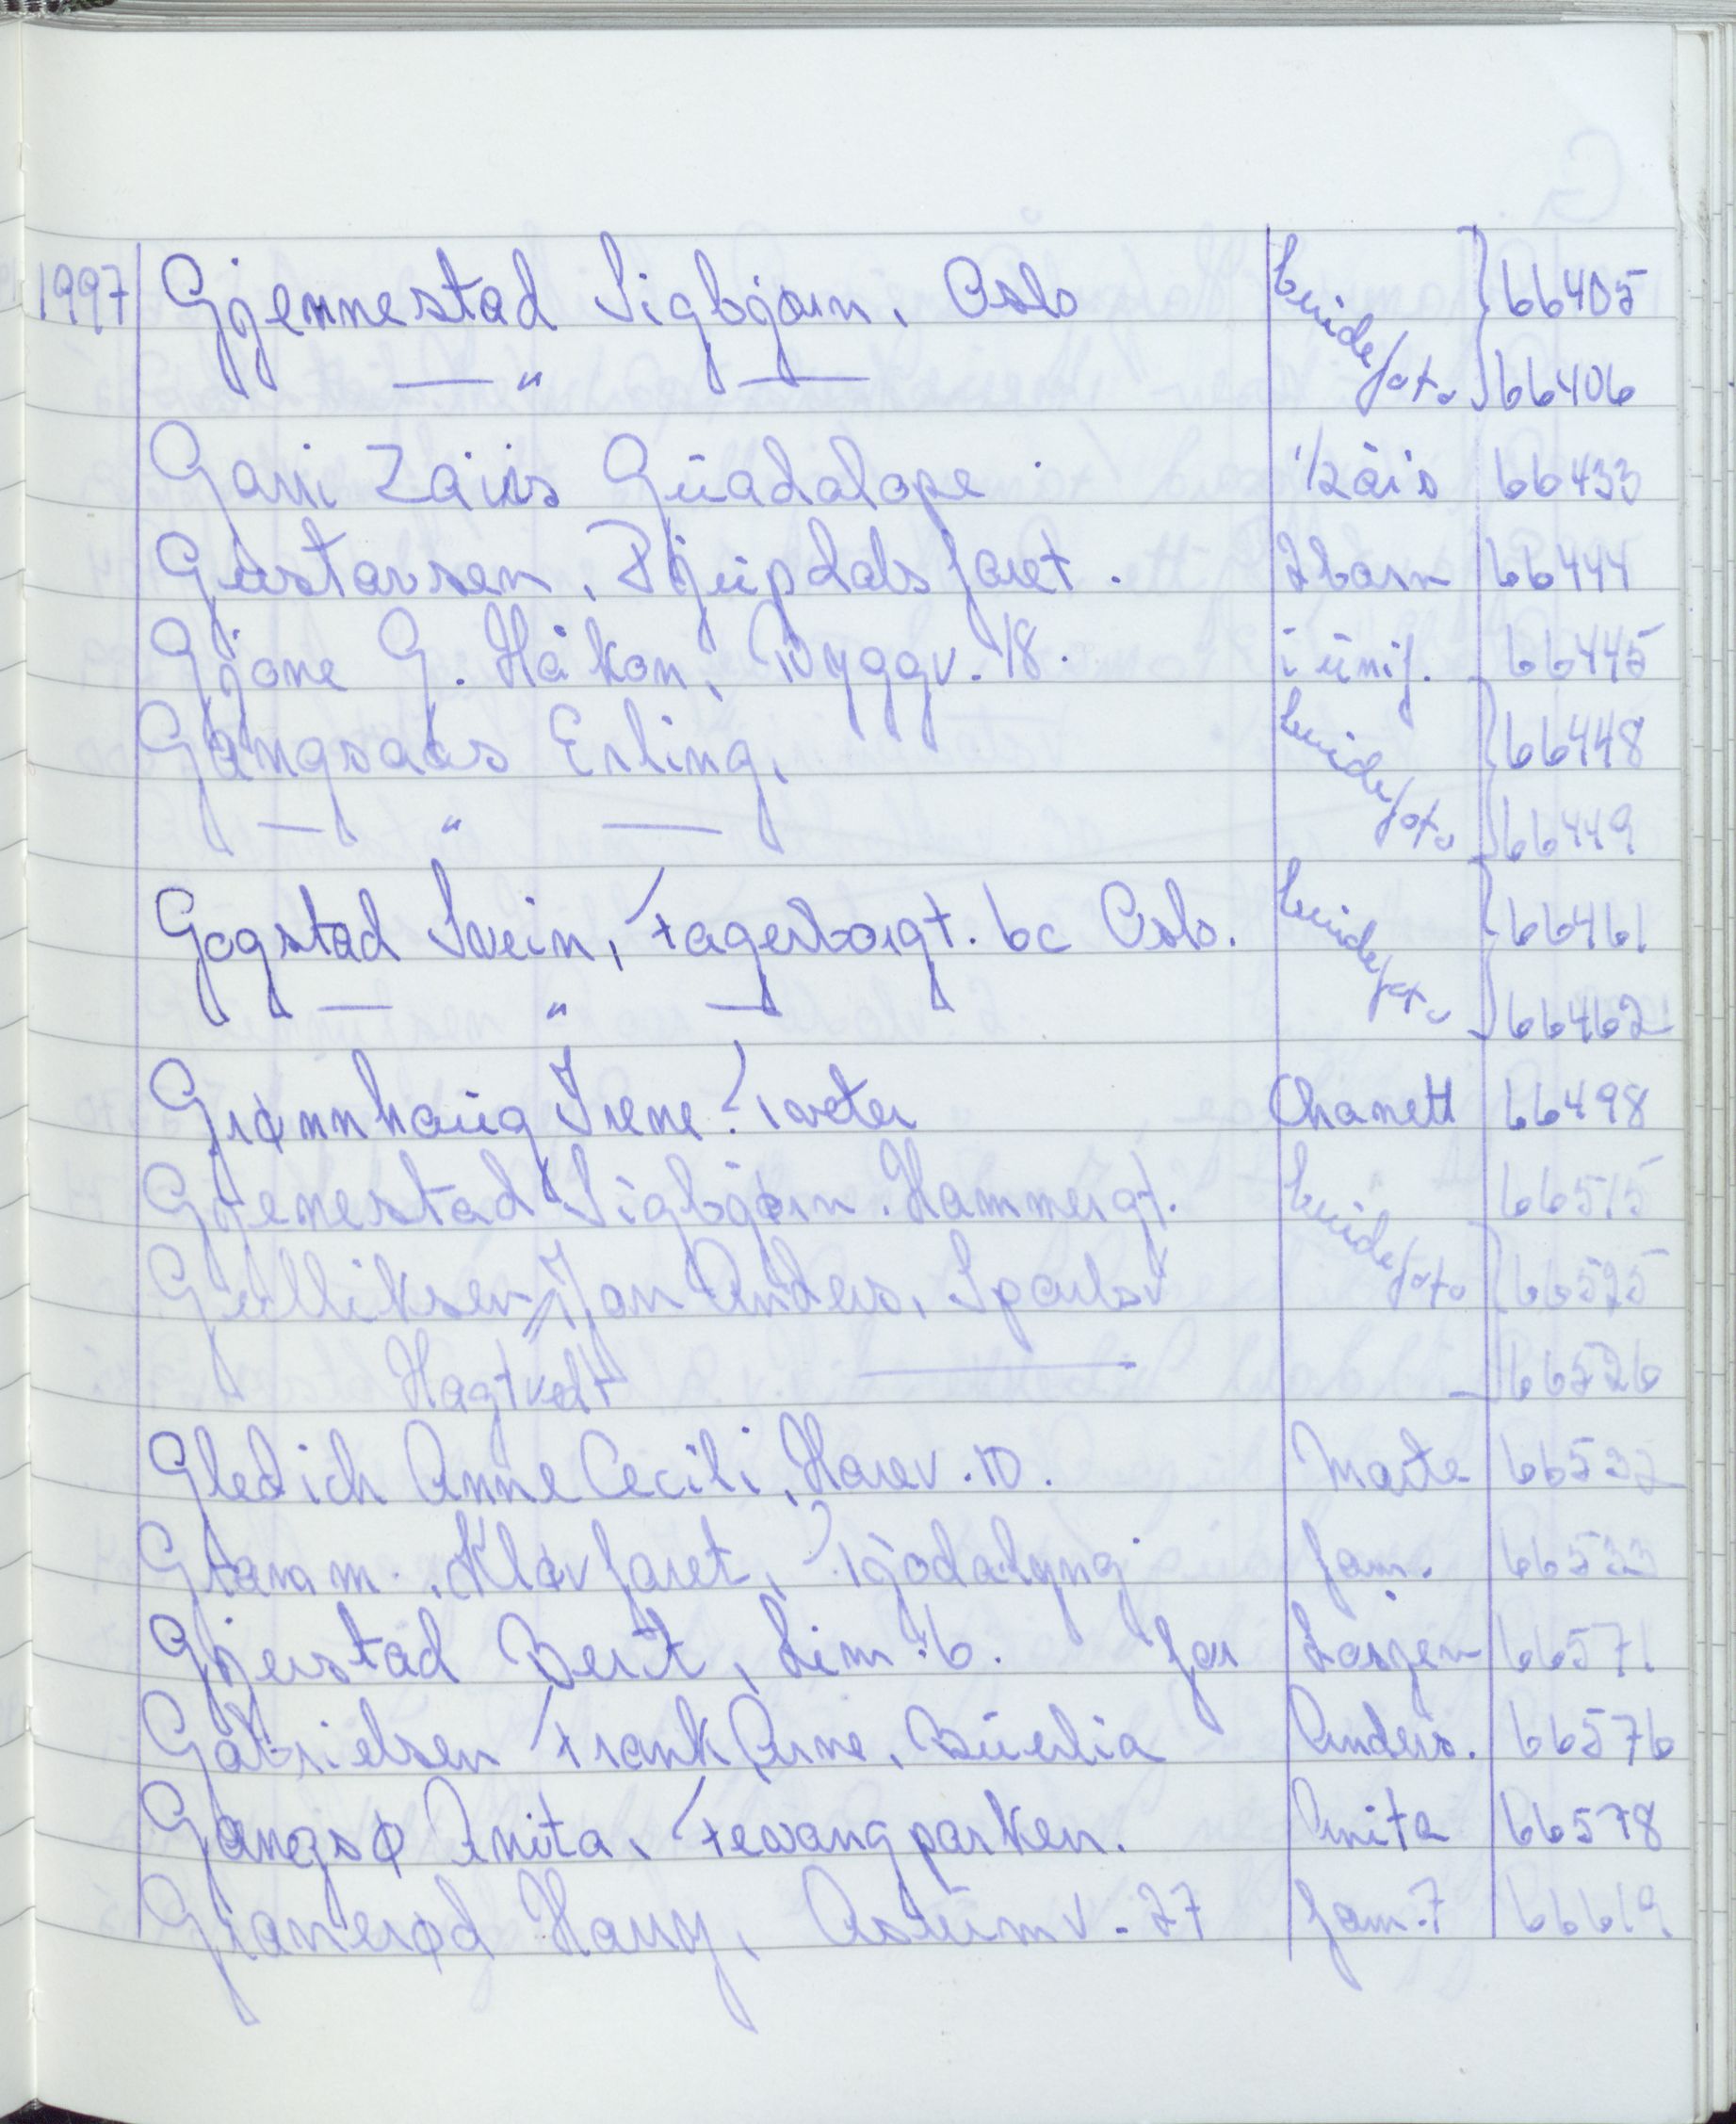 1997 Gjennestad Sigbjørn, Oslo brudefoto 66405
— " — 66406
Garri Zairis Guadalope 1/2 åris 66433
Gustavsen, Djupdalsfaret. 2 barn 66444
Gjone G. Håkon, Bryggv. 18. i unif. 66445
Gangsaas Erling, brudefoto 66448
— " — 66449
Gogstad Svein, Fagerborgt. 6c Oslo. brudefoto 66461
— " — 66462
Grønnhaug Irene Tveter Chanett 66498
Gjenestad Sigbjørn. Hammergt. 66515
Gulliksen Jan Anders, Sparbsv brudefoto 66525
Hagtvedt — 66526
Gledich Anne Cecili, Harev. 10. Marte 66532
Gramm. Kløvfaret, fam. 66533
Gjerstad Berit, Lim. 6. for 66571
Gabrielsen Frank Arne, Buerlia Anders. 66576
Gangsø Anita, Fevangparken. Anita 66578
Granerød Harry, Åsrumv. 27 fam. 7 66619